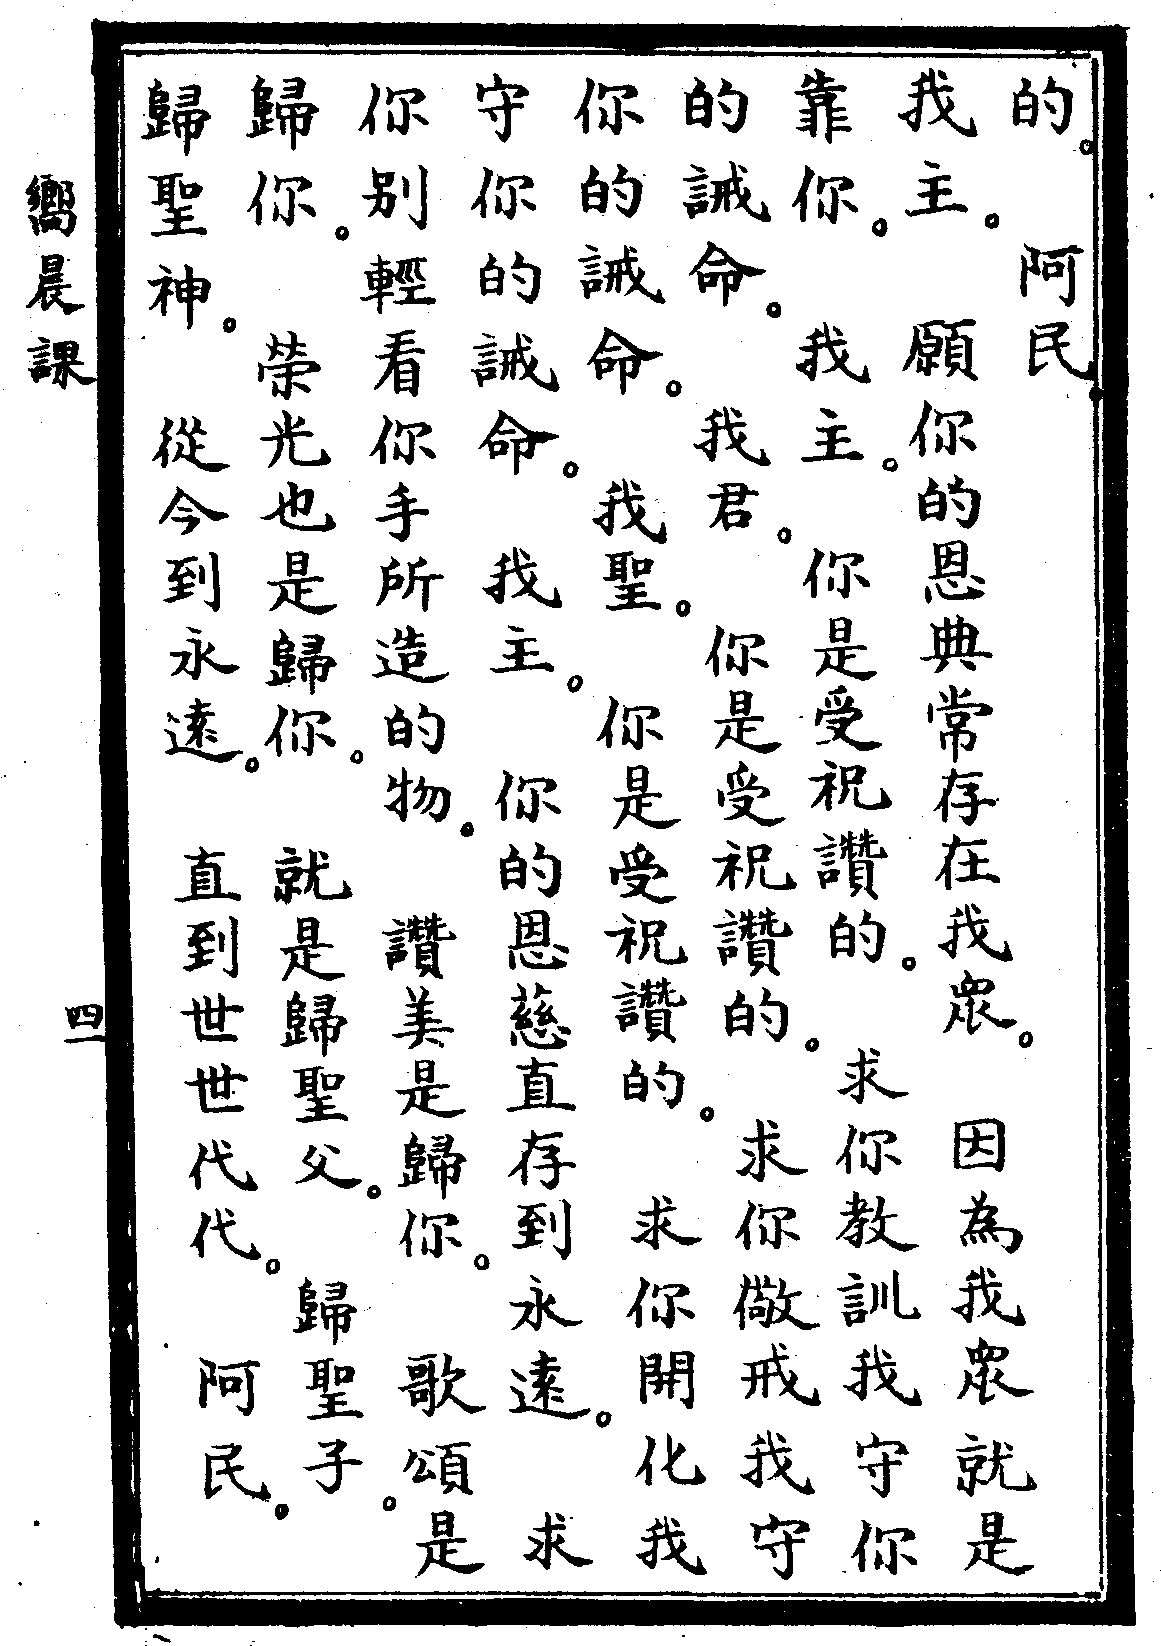 的。 阿民。
我主。 願你的恩典常存在我眾。 因為我眾就是
靠你。 我主。 你是受祝讚的。 求你教訓我守你
的誡命。 我君。 你是受祝讚的。 求你儆戒我守
你的誡命。 我聖。 你是受祝讚的。 求你開化我
守你的誡命。 我主。 你的恩慈直存到永遠。 求
你别輕看你手所造的物。 讚美是歸你。 歌頌是
歸你。 榮光也是歸你。 就是歸聖父。 歸聖子。
歸聖神。 從今到永遠。 直到世世代代。 阿民。
嚮晨課 四一